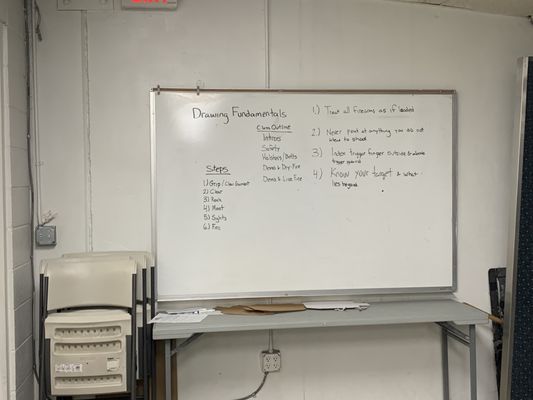 EXIT
Drawing Fundamentals
Class Outline
Intros
Safety
Holsters/Belts
Demo & Dry-Fire
Demo & Live Fire
Steps
1) Grip/Clear Garment
2) Clear
3) Rock
4) Meet
5) Sights
6) Fire
1.) Treat all firearms as if loaded
2.) Never point at anything you do not
want to shoot
3.) Index trigger finger outside & above
trigger guard
4.) Know your target & what
lies beyond